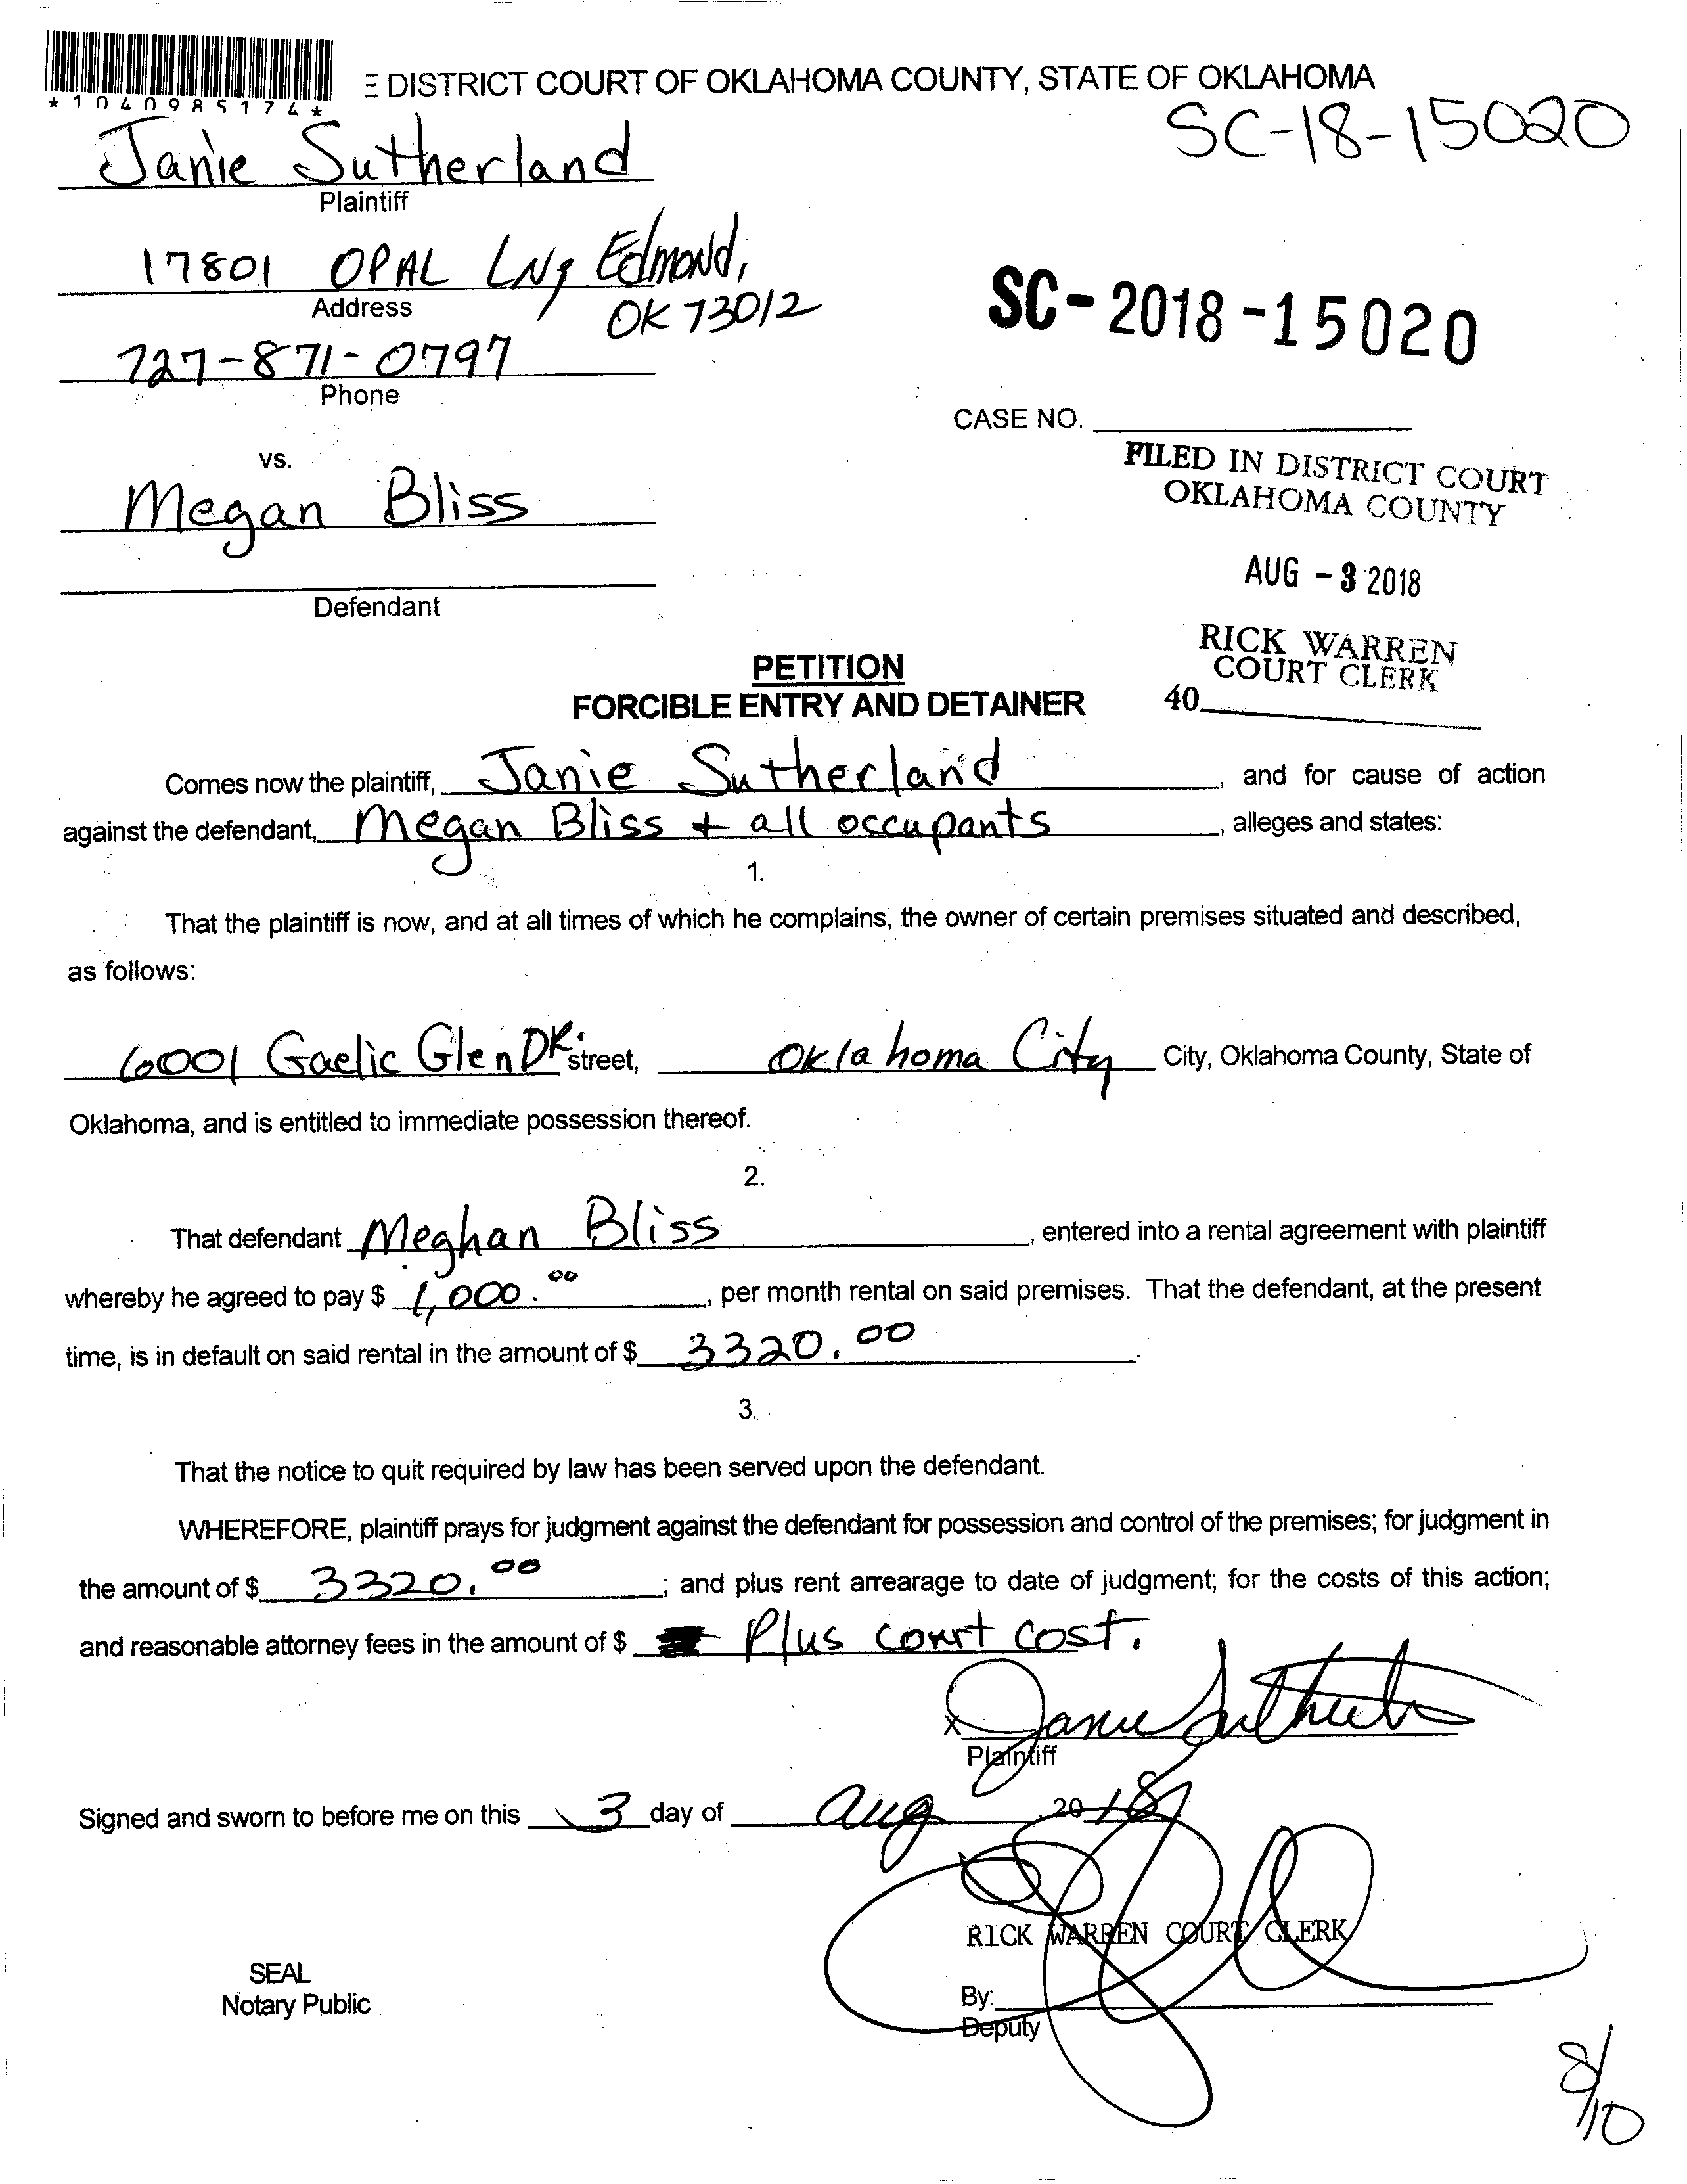 *1040985174*
E DISTRICT COURT OF OKLAHOMA COUNTY, STATE OF OKLAHOMA
SC-18-15020
Janie Sutherland
Plaintiff
17801 OPAL LN, Edmond,
Address
OK 73012
SC-2018-15020
727-871-0797
Phone
CASE NO.
vs.
FILED IN DISTRICT COURT
OKLAHOMA COUNTY
Megan Bliss
AUG -3 2018
Defendant
RICK WARREN
COURT CLERK
40
PETITION
FORCIBLE ENTRY AND DETAINER
Comes now the plaintiff, Janie Sutherland, and for cause of action
against the defendant, Megan Bliss + all occupants, alleges and states:
1.
That the plaintiff is now, and at all times of which he complains, the owner of certain premises situated and described,
as follows:
6001 Gaelic Glen DR. street, Oklahoma City City, Oklahoma County, State of
Oklahoma, and is entitled to immediate possession thereof.
2.
That defendant Meghan Bliss, entered into a rental agreement with plaintiff
whereby he agreed to pay $ 1,000.00, per month rental on said premises. That the defendant, at the present
time, is in default on said rental in the amount of $ 3320.00.
3.
That the notice to quit required by law has been served upon the defendant.
WHEREFORE, plaintiff prays for judgment against the defendant for possession and control of the premises; for judgment in
the amount of $ 3320.00; and plus rent arrearage to date of judgment; for the costs of this action;
and reasonable attorney fees in the amount of $ Plus court cost.
x Janie Sutherland
Plaintiff
Signed and sworn to before me on this 3 day of Aug, 2018
RICK WARREN COURT CLERK
SEAL
Notary Public
By:
Deputy
8/10